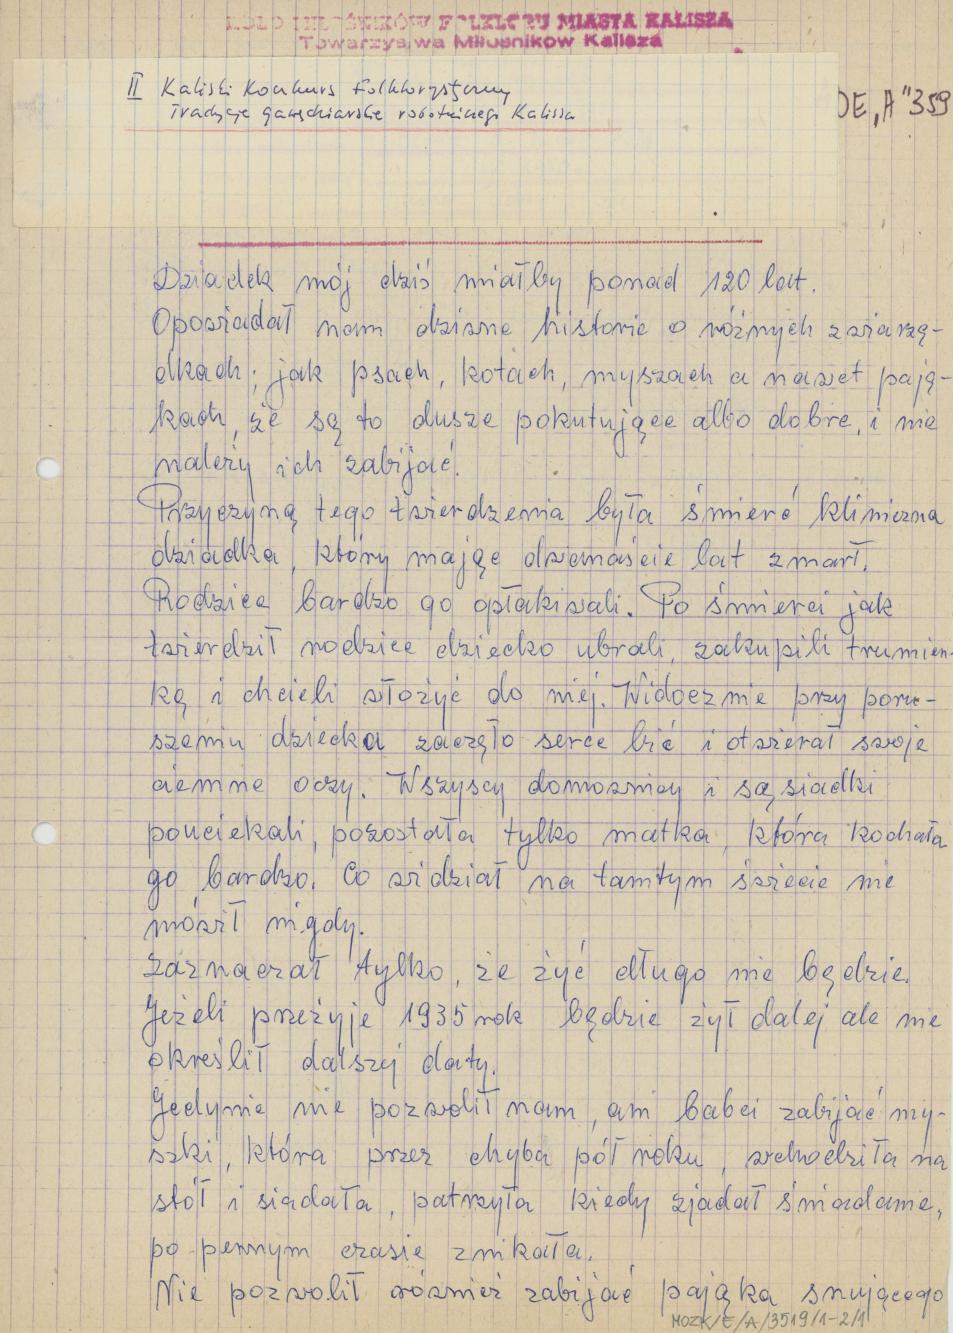 KOŁO MIŁOŚNIKÓW FOLKLORU MIASTA KALISZA
Towarzystwa Miłośników Kalisza
II Kaliski Konkurs Folklorystyczny
Tradycje gawędziarskie robotniczego Kalisza
DE „A" 359
Dziadek mój dziś miałby ponad 120 lat.
Opowiadał nam dziwne historie o różnych zwierzą-
dkach; jak psach, kotach, myszach a nawet pają-
kach, że są to dusze pokutujące albo dobre, i nie
należy ich zabijać.
Przyczyną tego twierdzenia była śmierć kliniczna
dziadka, który mając dwanaście lat zmarł.
Rodzice bardzo go opłakiwali. Po śmierci jak
twierdził rodzice dziecko ubrali, zakupili trumien-
kę i chcieli włożyć do niej. Widocznie przy poru-
szeniu dziecka zaczęło serce bić i otwierał swoje
ciemne oczy. Wszyscy domownicy i są siadki
pouciekali, pozostała tylko matka, która kochała
go bardzo. Co widział na tamtym świecie nie
mówił nigdy.
Zaznaczał tylko, że żyć długo nie będzie.
Jeżeli przeżyje 1935 rok będzie żył dalej ale nie
określił dalszej daty.
Jedynie nie pozwolił nam, ani babci zabijać my-
szki, która przez chyba pół roku, wchodziła na
stół i siadała, patrzyła kiedy zjadał śniadanie,
po pewnym czasie znikała.
Nie pozwolił również zabijać pająka snującego
MOZK/E/A/3519/1-2/1